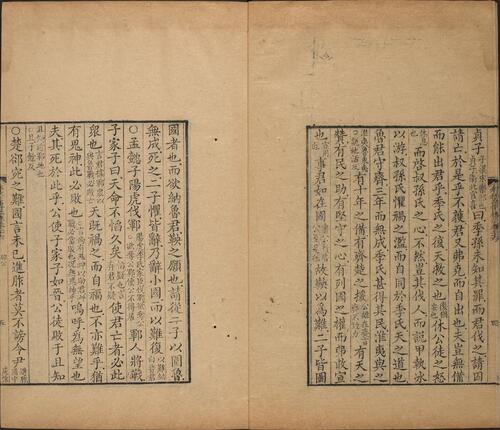 貞子子梁宋樂祁也貞子衛北宮喜曰季孫未知其罪而君伐之請囚
請亡於是乎不獲君又弗克而自出也夫豈無備
而能出君乎季氏之復天救之也復猶安也休公徒之怒
休息也而啓叔孫氏之心不然豈其伐人而說甲執冰
以游叔孫氏懼禍之濫而自同於季氏天之道也
魯君守齊三年而無成季氏甚得其民淮夷與之
有十年之備有齊楚之援有天之
賛有民之助有堅守之心有列國之權而弗敢宣
也宣用也事君如在國故鞅以為難二子皆圖
國者也而欲納魯君鞅之願也請從二子以圍魯
無成死之二子懼皆辭乃辭小國而以難復
〇孟懿子陽虎伐鄆鄆人將戰
子家子曰天命不慆久矣使君亡者必此
衆也天既禍之而自福也不亦難乎猶
有鬼神此必敗也嗚呼為無望也
夫其死於此乎公使子家子如晉公徒敗于且知
且知近鄆地也〇且子餘反
〇楚郤宛之難國言未已進胙者莫不謗令尹